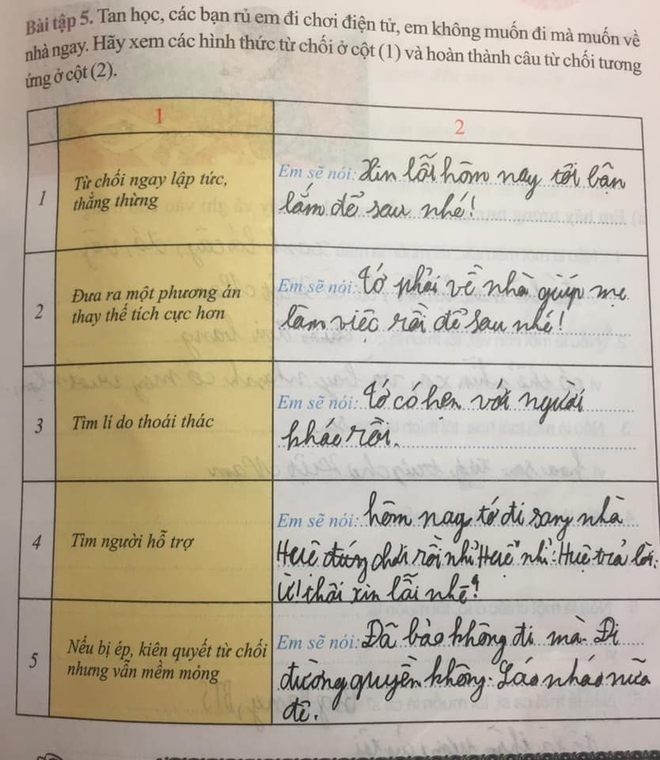 Bài tập 5. Tan học, các bạn rủ em đi chơi điện tử, em không muốn đi mà muốn về
nhà ngay. Hãy xem các hình thức từ chối ở cột (1) và hoàn thành câu từ chối tương
ứng ở cột (2).
1
2
1
Từ chối ngay lập tức,
thẳng thừng
Em sẽ nói: Xin lỗi hôm nay tôi bận
lắm để sau nhé!
2
Đưa ra một phương án
thay thế tích cực hơn
Em sẽ nói: tớ phải về nhà giúp mẹ
làm việc rồi để sau nhé!
3
Tìm lí do thoái thác
Em sẽ nói: tớ có hẹn với người
khác rồi.
4
Tìm người hỗ trợ
Em sẽ nói: hôm nay tớ đi sang nhà
Huệ chơi rồi nhỉ Huệ nhỉ: Huệ trả lời:
Ừ! thôi xin lỗi nhé!
5
Nếu bị ép, kiên quyết từ chối
nhưng vẫn mềm mỏng
Em sẽ nói: Đã bảo không đi mà. Đi
đường quyền không. Láo nháo nữa
đê.